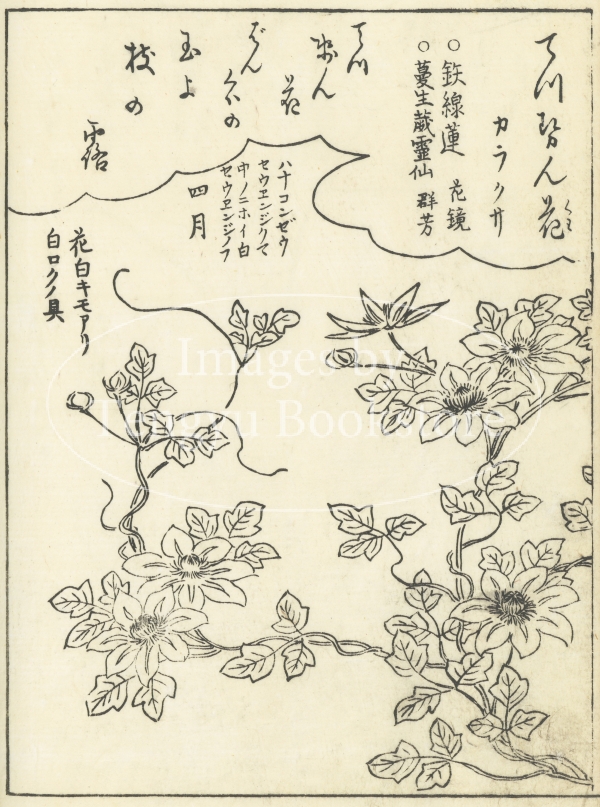 てつせん花
カラクサ
○鉄線蓮 花鏡
○蔓生葳靈仙 群芳
てつ
せん
花
ばん
久の
玉よ
枝の
露
ハナコンゼウ
セウヱンジクマ
中ノニホイ白
セウヱンジノフ
四月
花白キモアリ
白ロクノ具
Images by
Tengyu Bookstore